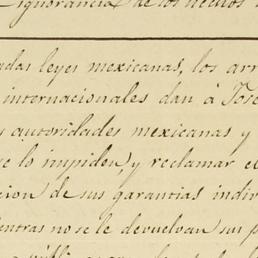 ignorancia de los hechos
das leyes mexicanas, los arr
internacionales dan á José
autoridades mexicanas y
lo impiden, y reclamar e
cion de sus garantias indiv
entras no se le devuelvan sus p